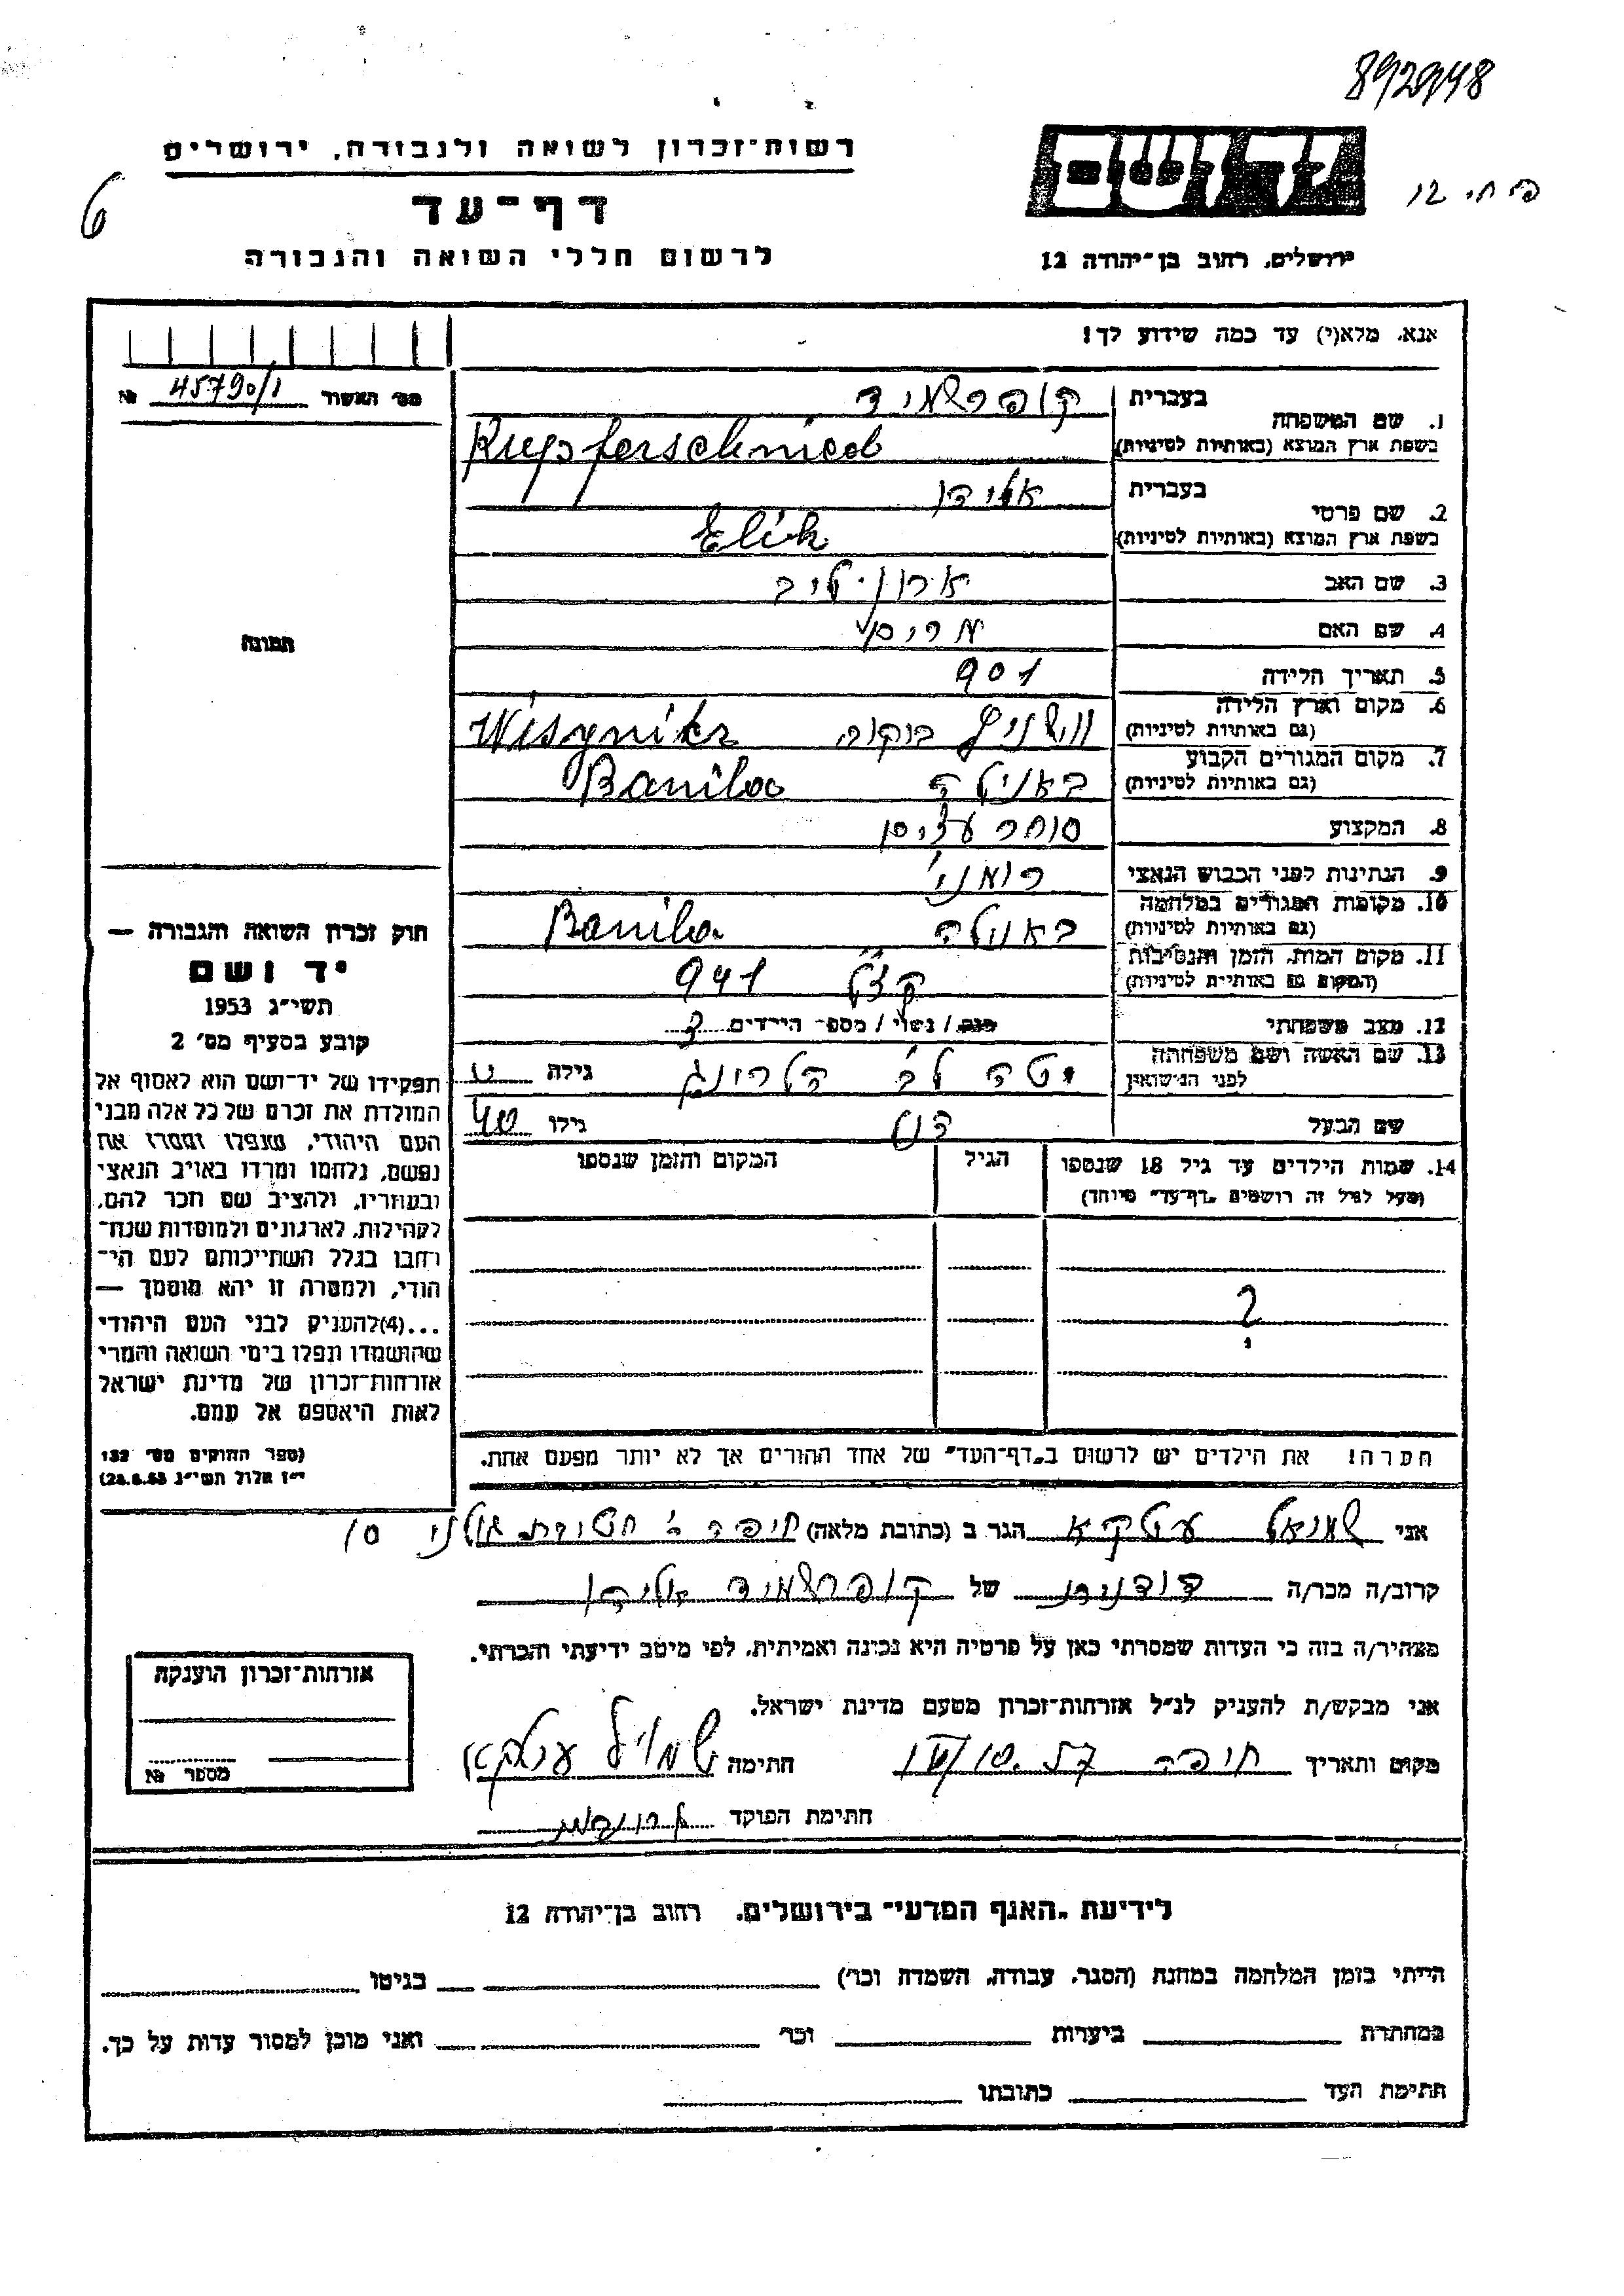 8929148
רשות־זכרון לשואה ולגבורה, ירושלים
דף־עד
לרשום חללי השואה והגבורה
6
ירושלים, רחוב בן־יהודה 12
אנא, מלא(י) עד כמה שידוע לך!
מס׳ האשור 45790/1 №
1. שם המשפחה
בעברית קופרשמיד
בשפת ארץ המוצא (באותיות לטיניות) Kupferschmied
2. שם פרטי
בעברית
בשפת ארץ המוצא (באותיות לטיניות) Elik
3. שם האב ארון ליב
4. שם האם מרים
5. תאריך הלידה 901
6. מקום וארץ הלידה
(גם באותיות לטיניות) Wisznitz
7. מקום המגורים הקבוע
(גם באותיות לטיניות) באנילה Banila
8. המקצוע סוחר עצים
9. הנתינות לפני הכבוש הנאצי רומני׳
10. מקומות המגורים במלחמה
(גם באותיות לטיניות) באנילה Banila
11. מקום המות, הזמן והנסיבות
(המקום גם באותיות לטיניות) 941
12. מצב משפחתי רווק / נשוי / מספ׳ הילדים 3
13. שם האשה ושם משפחתה
לפני הנישואין יטה לב גילה
שם הבעל גילו 40
תמונה
14. שמות הילדים עד גיל 18 שנספו
(מעל לגיל זה רושמים „דף־עד״ מיוחד)
הגיל
המקום והזמן שנספו
?
הערה! את הילדים יש לרשום ב„דף־העד״ של אחד ההורים אך לא יותר מפעם אחת.
חוק זכרון השואה והגבורה —
יד ושם
תשי״ג 1953
קובע בסעיף מס׳ 2
תפקידו של יד־ושם הוא לאסוף אל
המולדת את זכרם של כל אלה מבני
העם היהודי, שנפלו ומסרו את
נפשם, נלחמו ומרדו באויב הנאצי
ובעוזריו, ולהציב שם וזכר להם,
לקהילות, לארגונים ולמוסדות שנח־
רבו בגלל השתייכותם לעם הי־
הודי, ולמטרה זו יהא מוסמך —
...(4)להעניק לבני העם היהודי
שהושמדו ונפלו בימי השואה והמרי
אזרחות־זכרון של מדינת ישראל
לאות היאספם אל עמם.
(ספר החוקים מס׳ 132
י״ז אלול תשי״ג 28.8.53)
אני שמואל הגר ב (כתובת מלאה) חיפה 10
קרוב/ה מכר/ה של קופרשמיד
מצהיר/ה בזה כי העדות שמסרתי כאן על פרטיה היא נכונה ואמיתית, לפי מיטב ידיעתי והכרתי.
אני מבקש/ת להעניק לנ״ל אזרחות־זכרון מטעם מדינת ישראל.
מקום ותאריך חיפה חתימה שמואל
חתימת הפוקד
אזרחות־זכרון הוענקה
מספר №
לידיעת „האגף המדעי״ בירושלים, רחוב בן־יהודה 12
הייתי בזמן המלחמה במחנה (הסגר, עבודה, השמדה וכו׳) בגיטו
במחתרת ביערות וכו׳ ואני מוכן למסור עדות על כך.
חתימת העד כתובתו